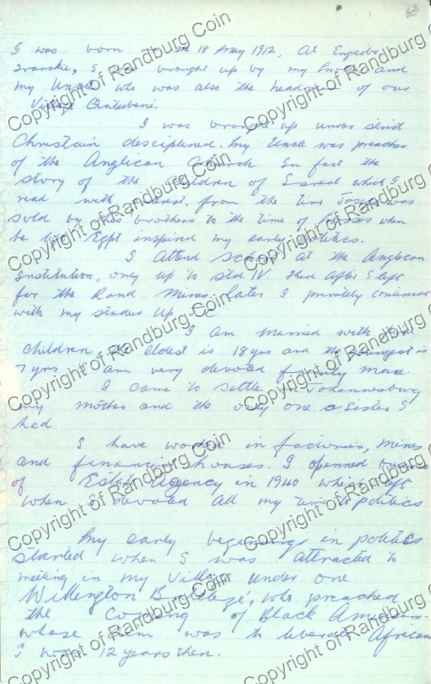 63
I was born the 18 May 1912. At Engcobo
Transkei, I was brought up by my mother and
my Uncle who was also the headman of our
Village
I was brought up under strict
Christain desciplined. My Uncle was preacher
of the Anglican Church In fact the
story of the children of Israel which I
read with interest. from the time Joseph was
sold by his brothers to the time of Moses when
he left Egpt inspired my early politics.
I Attend School at the Anglican
institution, only up to Std IV. then after I left
for the Rand Mines. Later I privately continued
with my studies up
I am married with
children, the eldest is 18 yrs and the youngest is
7 yrs I am very devoted family man.
I came to settle in Johannesburg
my mother and the only one a sister I
had
I have worked in factories, mines
and financing houses. I opened
of Estate Agency in 1940 which I left
when I devoted all my time in politics
My early beginnings in politics
started when I was attracted to
meeting in my Village under one
Wellington who preached
the Coming of Black American
whose was to liberate African
I was 12 years then.
Copyright of Randburg Coin